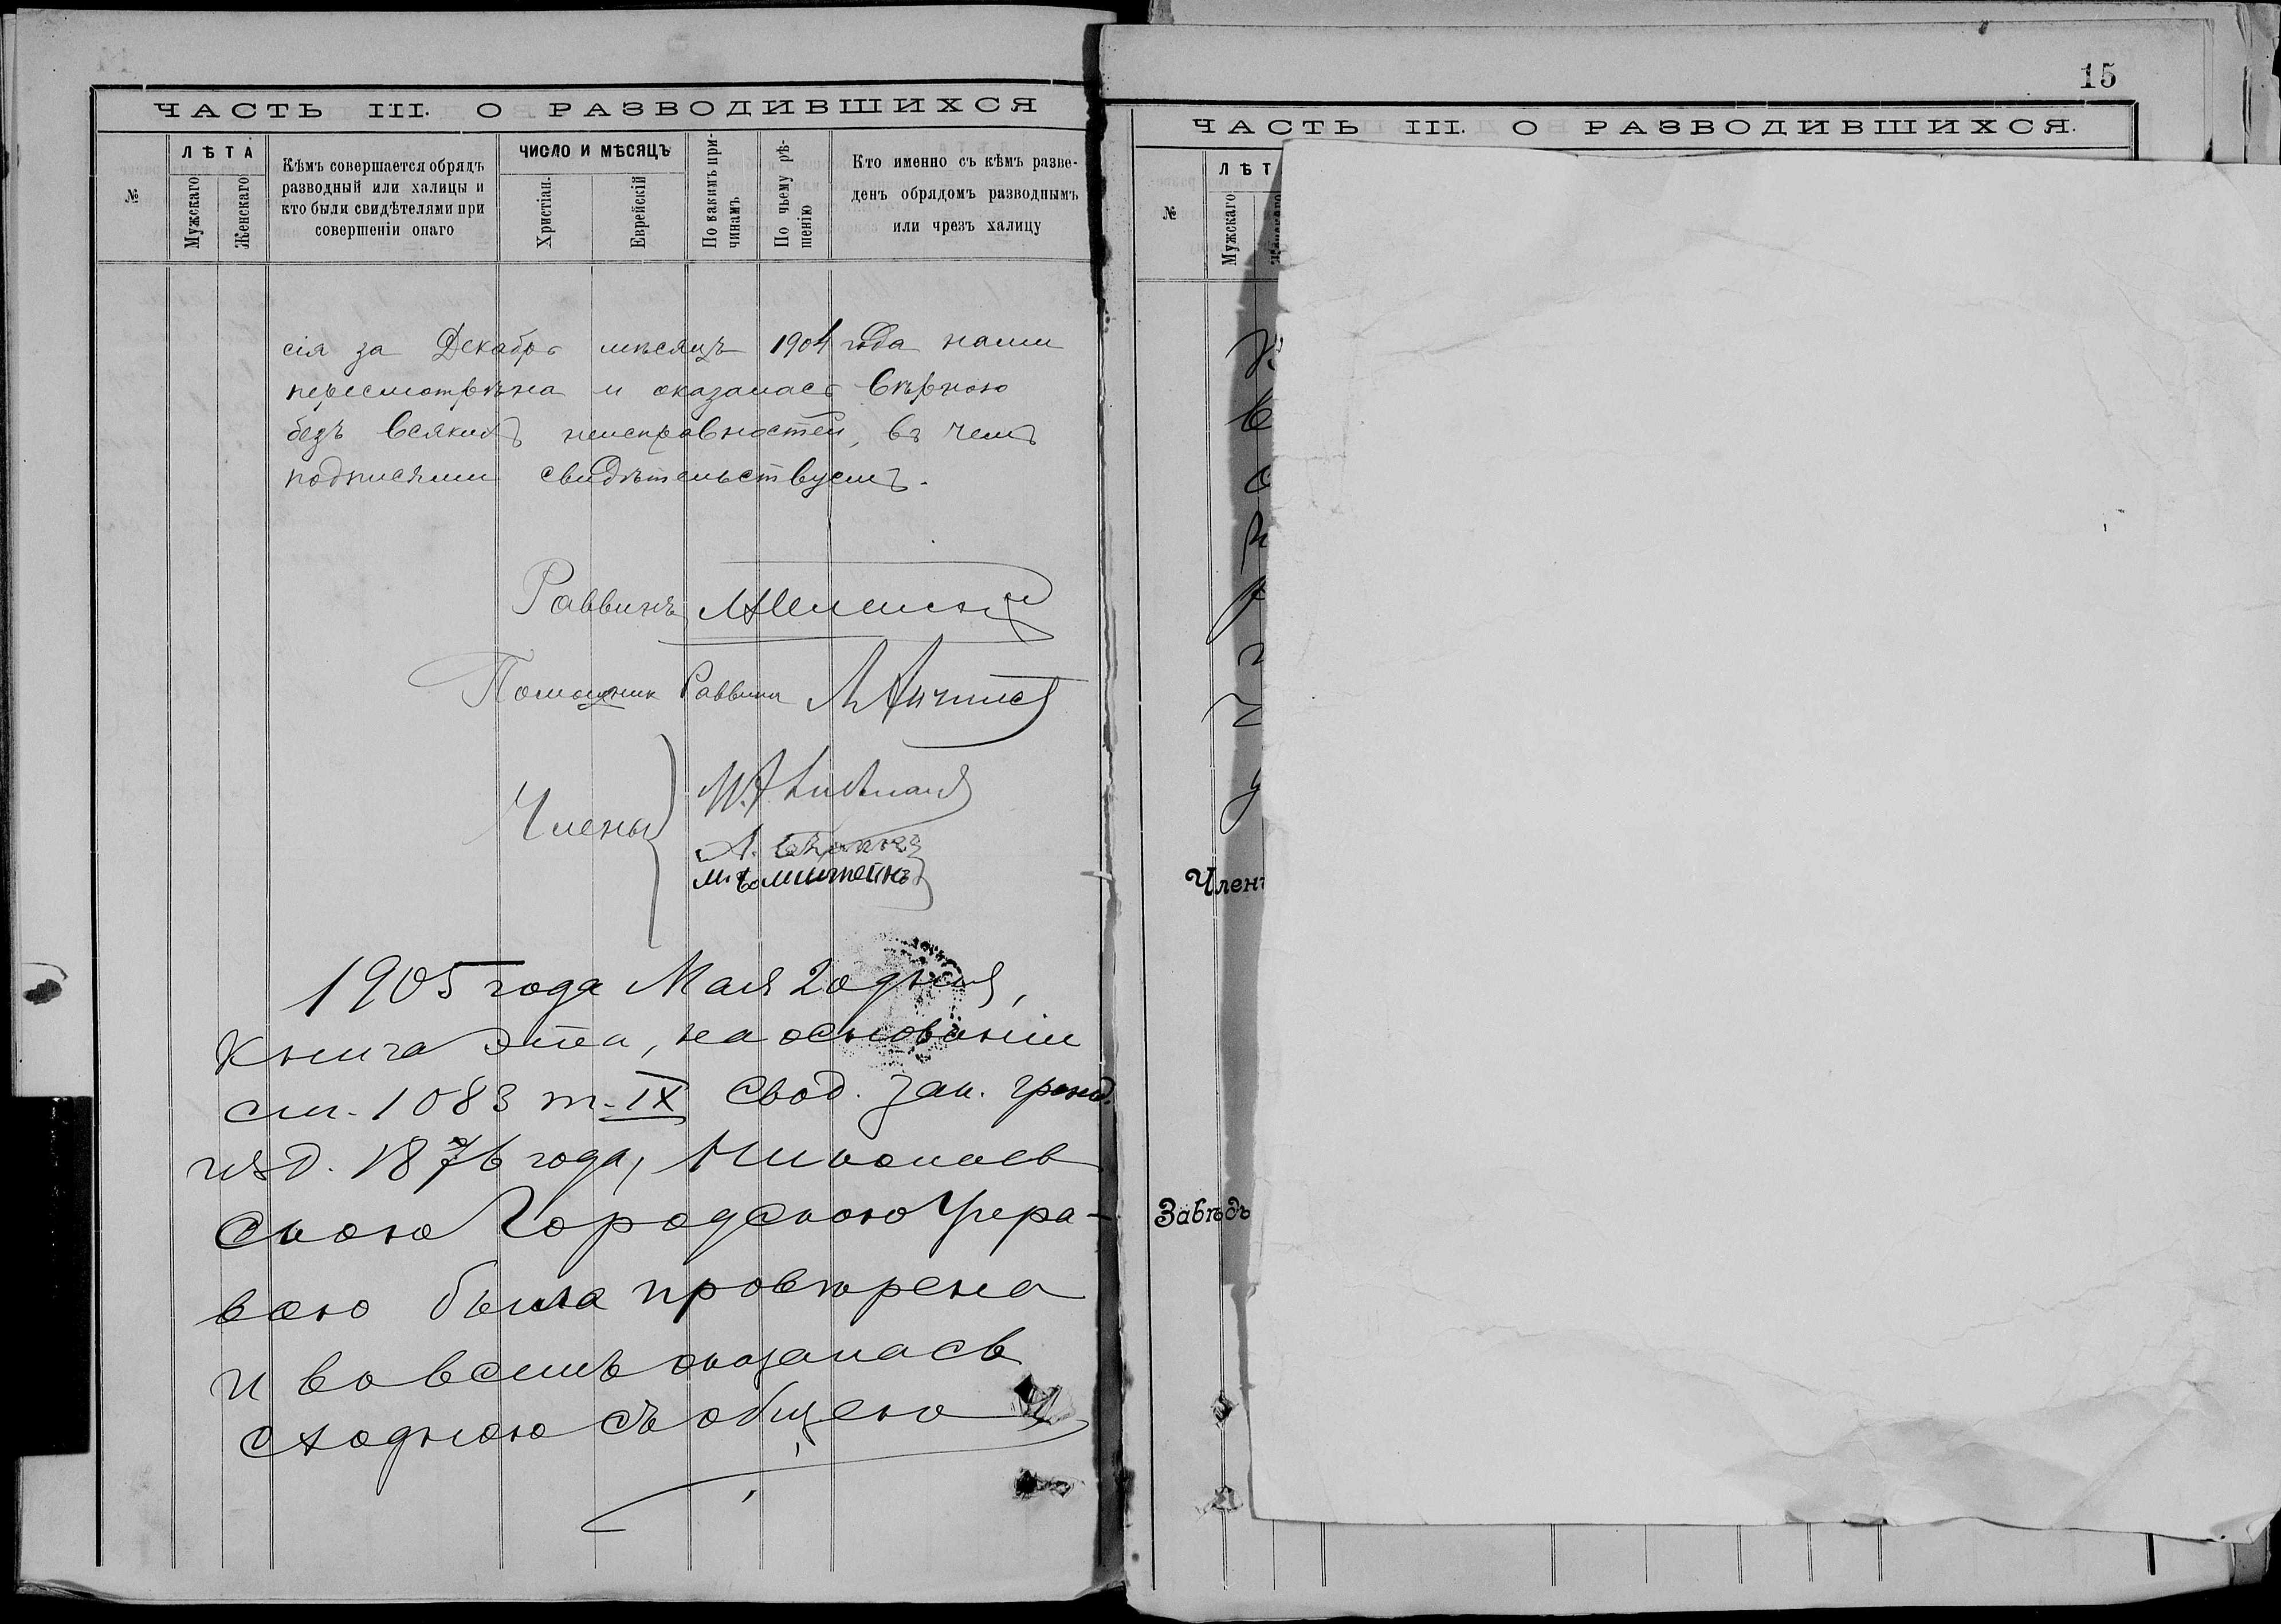 ЧАСТЬ III. О РАЗВОДИВШИХСЯ
№
ЛѢТА
Мужскаго
Женскаго
Кѣмъ совершается обрядъ
разводный или халицы и
кто были свидѣтелями при
совершеніи онаго
ЧИСЛО И МѢСЯЦЪ
Христіан.
Еврейскій
По какимъ при-
чинамъ
По чьему рѣ-
шенію
Кто именно съ кѣмъ разве-
денъ обрядомъ разводнымъ
или чрезъ халицу
сія за Декабрь мѣсяцъ 1904 года нами
пересмотрѣна и оказалась вѣрною
безъ всякихъ неисправностей, въ чемъ
подписями свидѣтельствуемъ.
Раввинъ
Помощник Раввина
Члены
1905 года Мая 20 дня,
Книга эта, на основаніи
ст. 1083 т. IX Свод. Зак. гражд.
изд. 1876 года, Николаев
скою Городскою Упра-
вою была провѣрена
и во всемъ оказалась
сходною съ общею
15
ЧАСТЬ III. О РАЗВОДИВШИХСЯ.
№
ЛѢТ
Мужскаго
Член
Завѣд